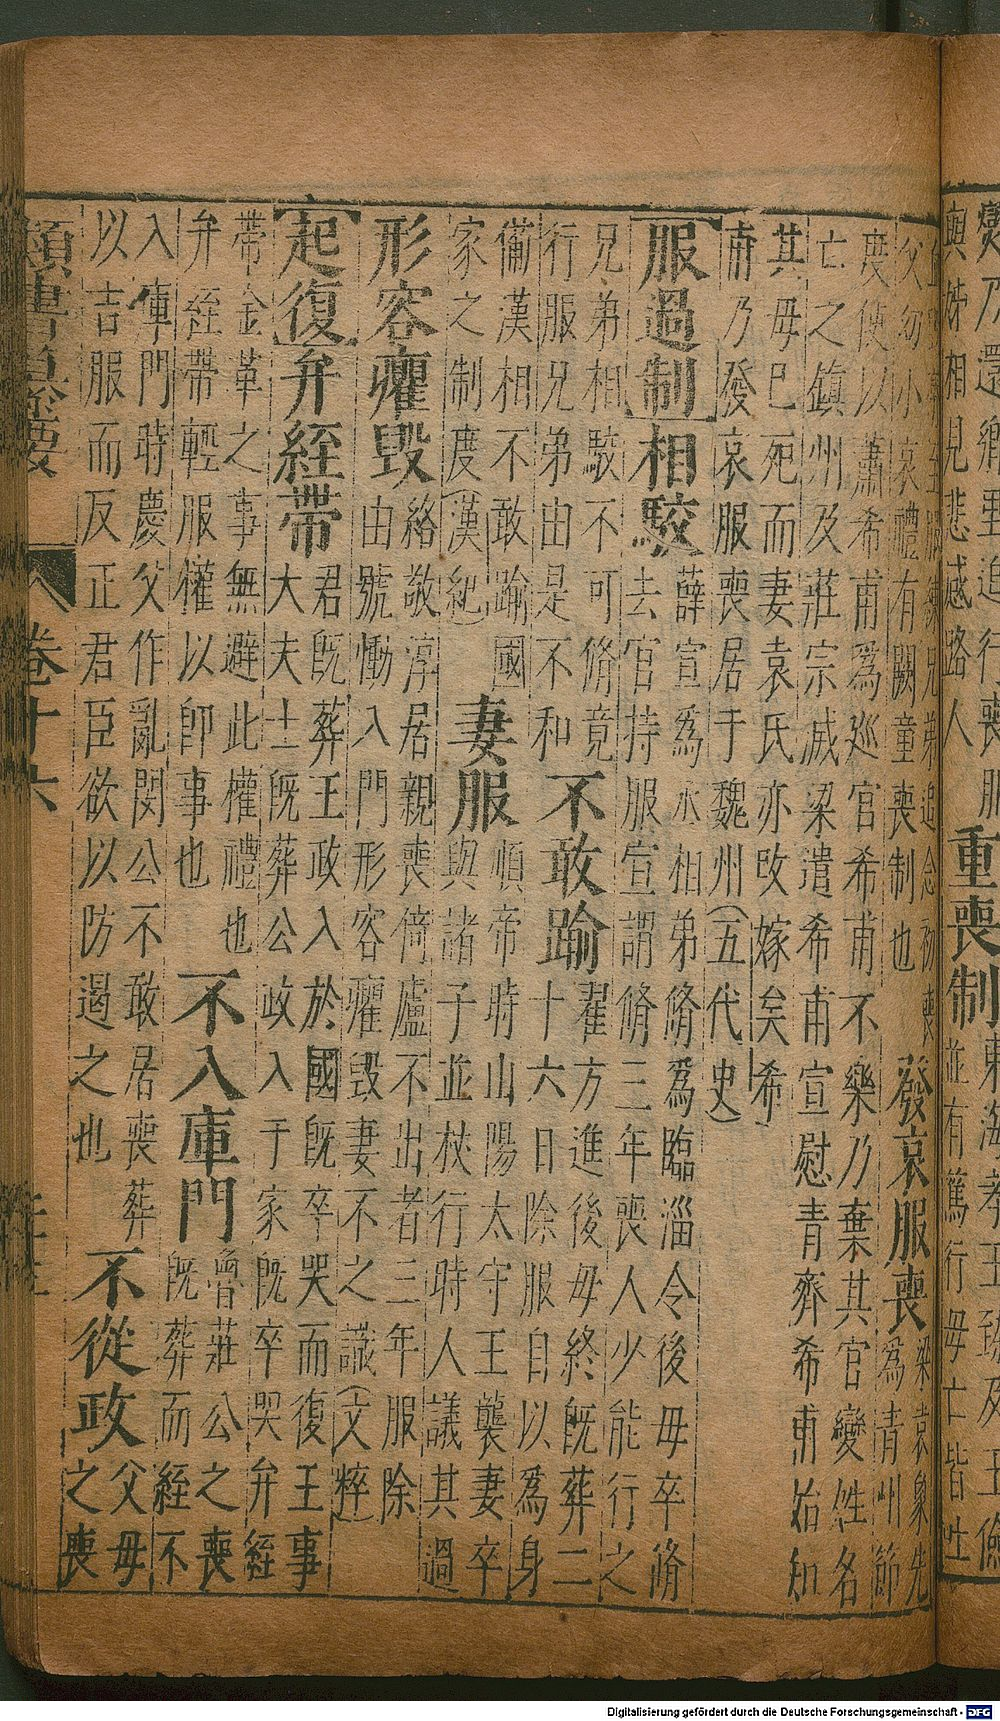 變乃還鄉里追行喪服
與姊相見悲感路人
重喪制
東海孝王臻及王儉
並有篤行母亡皆吐
血數歲至服練兄弟追念初喪
父幼小哀禮有闕童喪制也
發哀服喪
梁袁象先
為青州節
度使以蕭希甫為巡官希甫不樂乃棄其官變姓名
亡之鎮州及莊宗滅梁遣希甫宣慰青齊希甫始知
其母已死而妻袁氏亦攺嫁矣希
甫乃發哀服喪居于魏州(五代史)
服過制
相駮
薛宣為丞相弟脩為臨淄令後母卒脩
去官持服宣謂脩三年喪人少能行之
兄弟相駮不可脩竟
行服兄弟由是不和
不敢踰
翟方進後母終既葬二
十六日除服自以為身
備漢相不敢踰國
家之制度(漢紀)
妻服
順帝時山陽太守王襲妻卒
與諸子並杖行時人議其過
形容癯毀
絡敬淳居親喪倚廬不出者三年服除
由號慟入門形容癯毀妻不之識(文粹)
起復
弁絰帶
君既葬王政入於國既卒哭而復王事
大夫士既葬公政入于家既卒哭弁絰
帶金革之事無避此權禮也
弁絰帶輕服權以即事也
不入庫門
魯莊公之喪
既葬而絰不
入庫門時慶父作亂閔公不敢居喪葬
以吉服而反正君臣欲以防遏之也
不從政
父母
之喪
類書纂要
卷十六
Digitalisierung gefördert durch die Deutsche Forschungsgemeinschaft - DFG